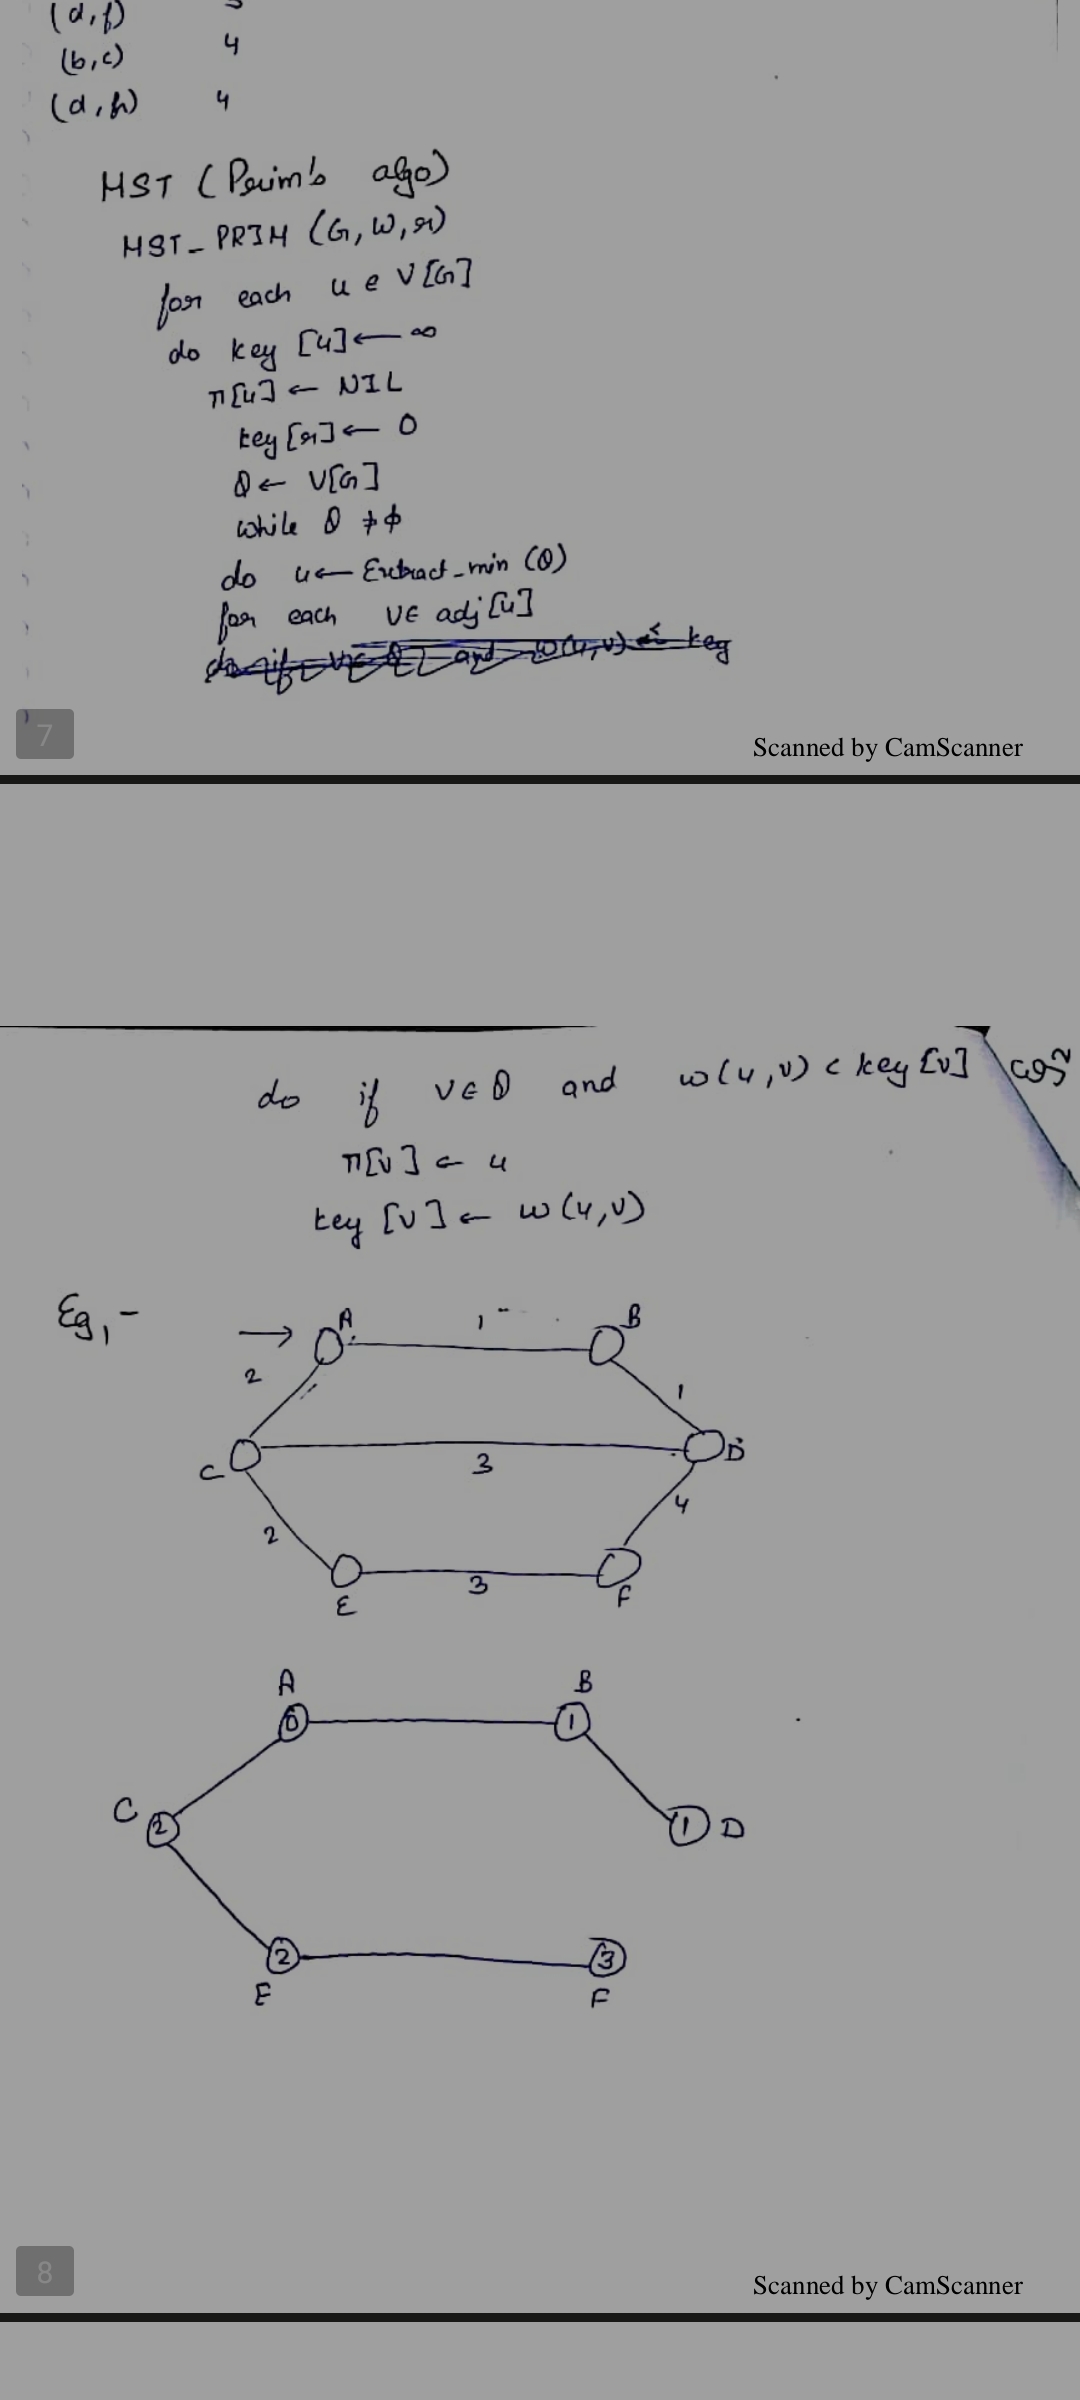 (d,f)
(b,c) 4
(d,h) 4
MST (Prim's algo)
MST_PRIM (G, W, r)
for each u ∈ V[G]
do key [u] ← ∞
π[u] ← NIL
key [r] ← 0
Q ← V[G]
while Q ≠ φ
do u ← Extract_min (Q)
for each v ∈ adj [u]
do if v ∈ Q and w(u,v) < key
7
Scanned by CamScanner
do if v ∈ Q and w(u,v) < key [v]
π[v] ← u
key [v] ← w(u,v)
Eg,-
→ A 1 B
2 1
C 3 D
2 4
E 3 F
A B
0 1
C 2 1 D
2 3
E F
8
Scanned by CamScanner